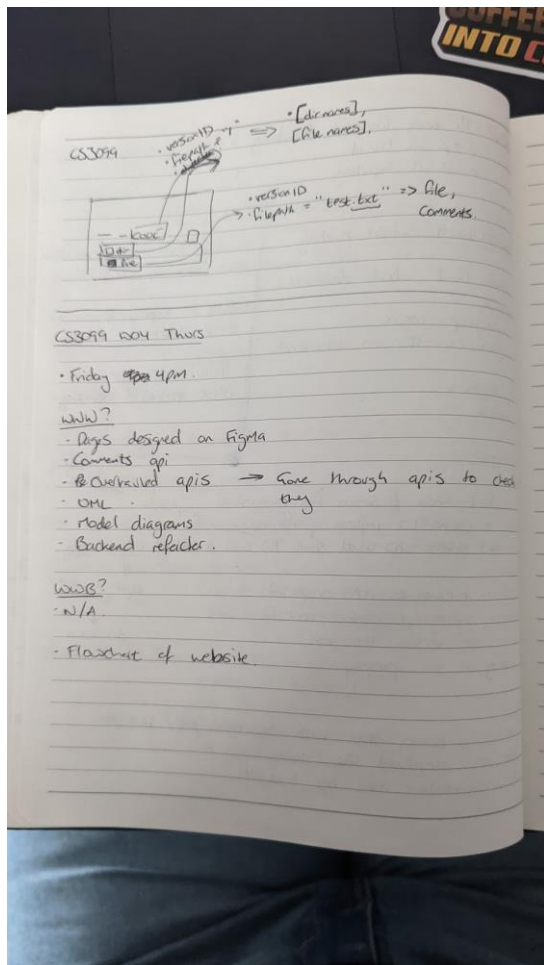 COFFEE
INTO C
CS3099
· versionID
· filepath =
⇒ · [dirnames],
[file names].
· versionID
· filepath = "test.txt" => file,
comments.
Dir
file
CS3099 W04 Thurs
· Friday 4pm.
WWW?
· Pages designed on Figma
· Comments api
· Overhauled apis → Gone through apis to check
they
· UML
· Model diagrams
· Backend refacter.
WWB?
· N/A
· Flowchart of website.